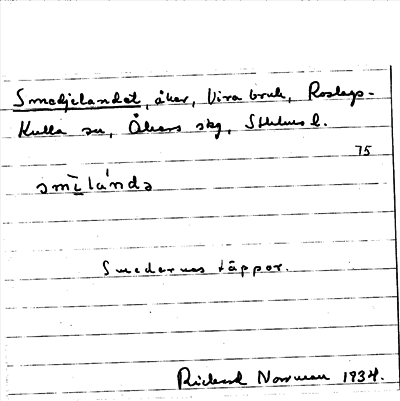 Smedjelandet, åker, Vira bruk, Roslags-
Kulla sn, Åkers skg, Sthlms l.
75
smìlánda
Smedernas täppor.
Rickard Norrman 1934.